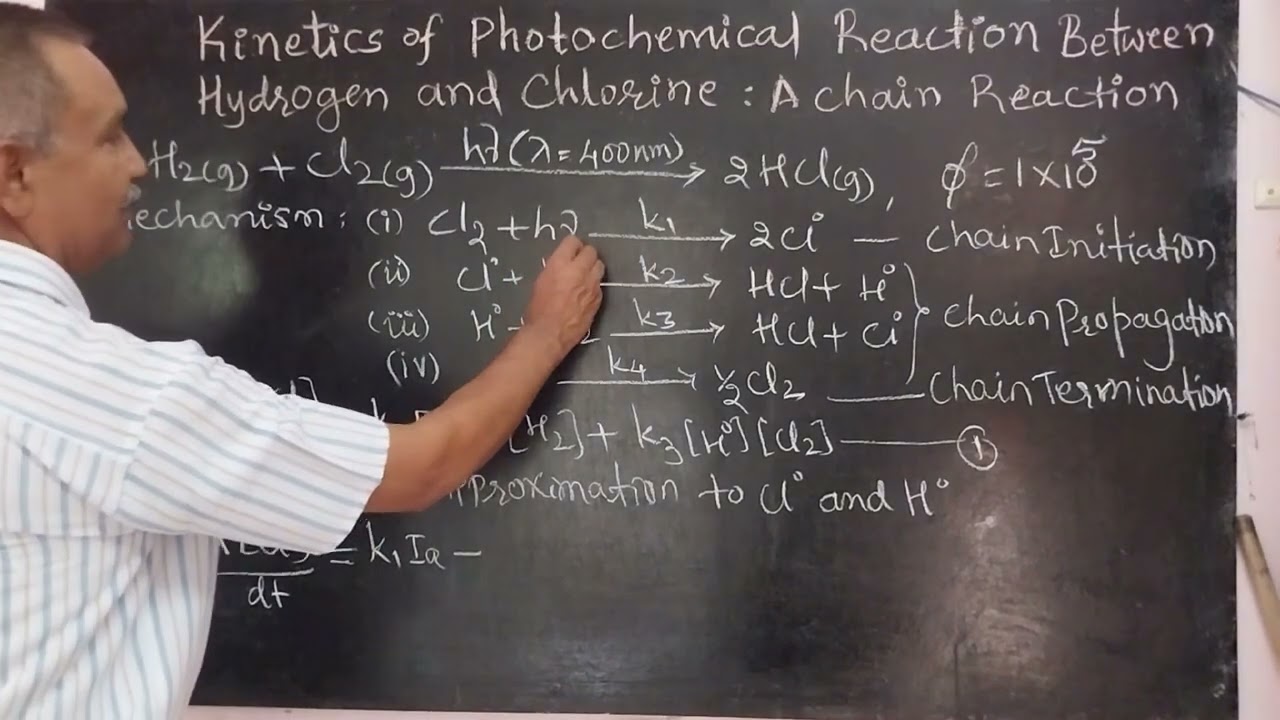 Kinetics of Photochemical Reaction Between
Hydrogen and Chlorine : A Chain Reaction
H₂(g) + Cl₂(g) —hν (λ=400nm)→ 2HCl(g), φ = 1×10⁵
echanism : (i) Cl₂ + hν —k₁→ 2Cl° — Chain Initiation
(ii) Cl° + —k₂→ HCl + H°
(iii) H° + ₂ —k₃→ HCl + Cl° } Chain Propagaton
(iv) —k₄→ ½Cl₂ — Chain Termination
[H₂] + k₃[H°][Cl₂] — ①
pproximation to Cl° and H°
dt = k₁Ia –